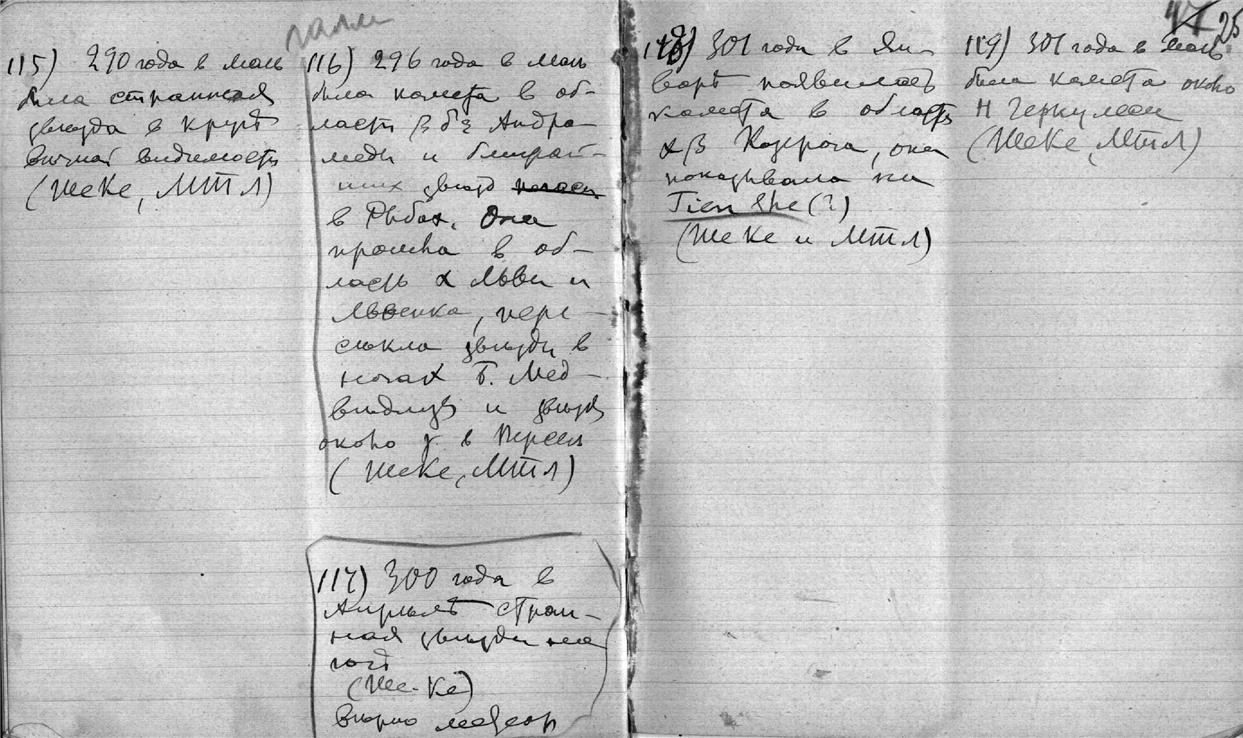 47 25
115) 290 года в мае
была странная
звезда в кругѣ
вѣчной видимости
(Ше Ке, МТЛ)
116) 296 года в мае
была комета в об-
ласти β δ ξ Андро-
меды и ближай-
ших звезд
в Рыбах. Она
прошла в об-
ласть α Льва и
Львенка, пере-
секла звезды в
ногах Б. Мед-
ведицы и звезды
около γ в Персее
(Ше Ке, МТЛ)
117) 300 года в
Апрѣлѣ стран-
ная звезда на
(Ше-Ке)
вѣрно метеор
118) 301 года в Ян-
варѣ появилась
комета в области
α β Козерога, она
показывала на
Tien She (?)
(Ше Ке и МТЛ)
119) 301 года в мае
была комета около
Н Геркулеса
(Ше Ке, МТЛ)